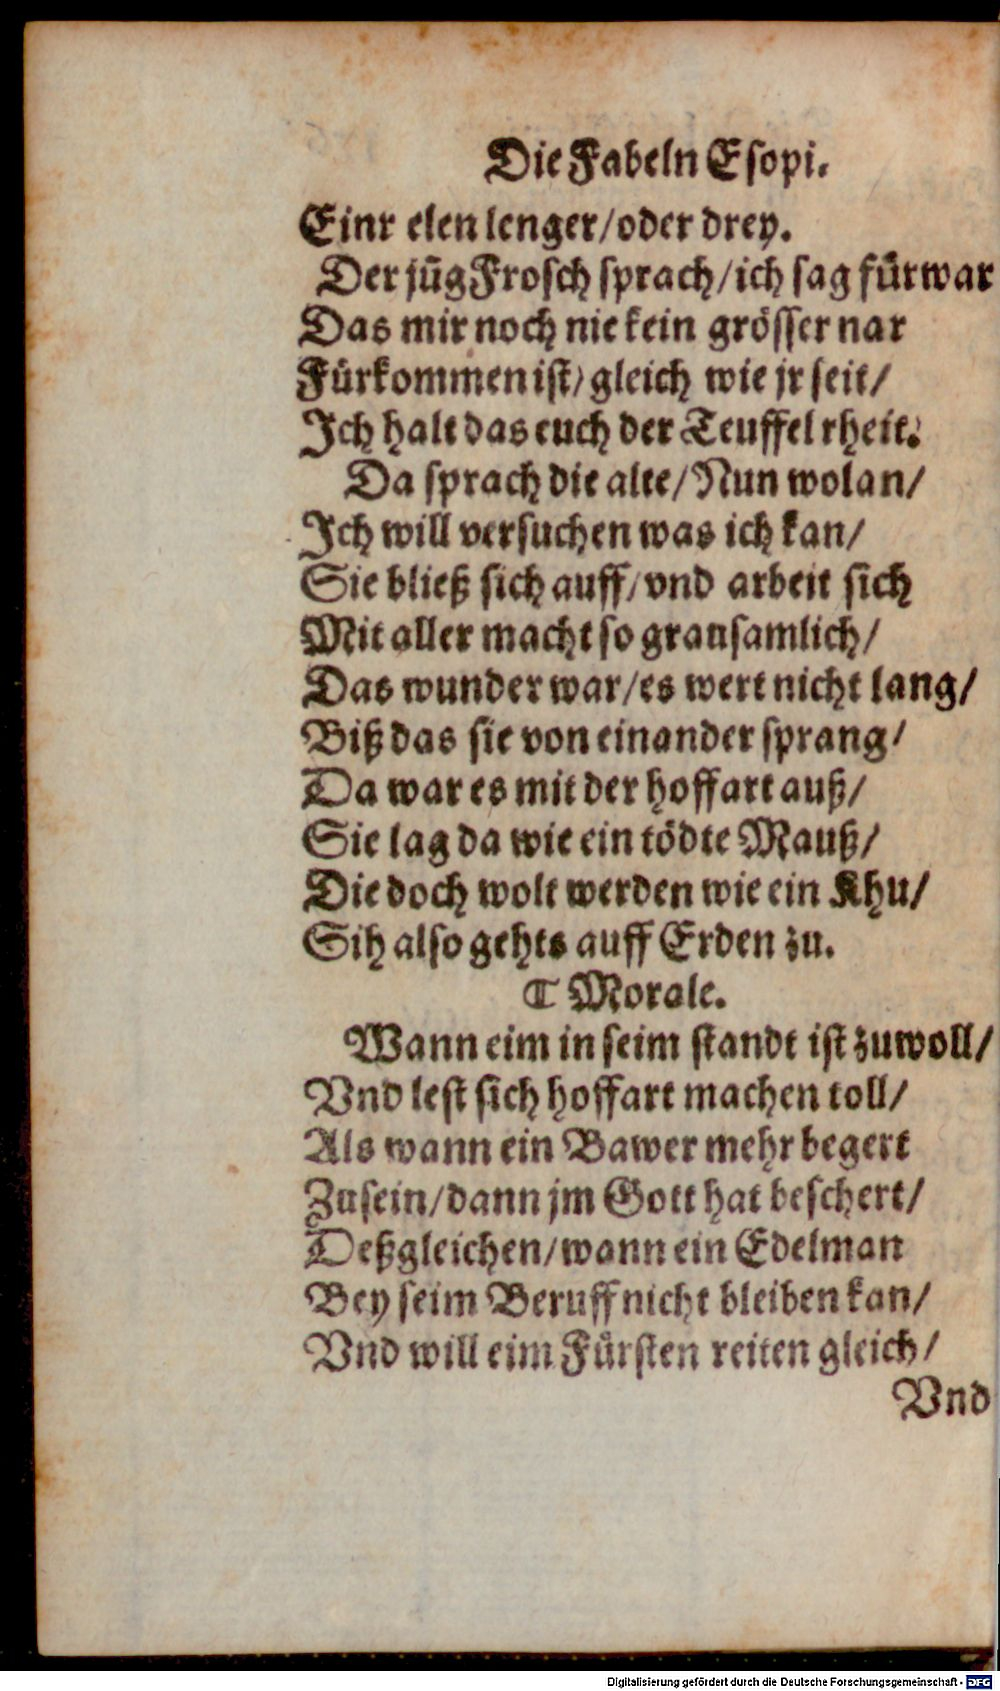 Die Fabeln Esopi.
Einr elen lenger/oder drey.
Der jūg Frosch sprach/ich sag fürwar
Das mir noch nie kein grösser nar
Fürkommen ist/gleich wie jr seit/
Ich halt das euch der Teuffel rheit.
Da sprach die alte/Nun wolan/
Ich will versuchen was ich kan/
Sie bließ sich auff/vnd arbeit sich
Mit aller macht so grausamlich/
Das wunder war/es wert nicht lang/
Biß das sie von einander sprang/
Da war es mit der hoffart auß/
Sie lag da wie ein tödte Mauß/
Die doch wolt werden wie ein Khu/
Sih also gehts auff Erden zu.
☾ Morale.
Wann eim in seim standt ist zuwoll/
Vnd lest sich hoffart machen toll/
Als wann ein Bawer mehr begert
Zu sein/dann jm Gott hat beschert/
Deßgleichen/wann ein Edelman
Bey seim Beruff nicht bleiben kan/
Vnd will eim Fürsten reiten gleich/
Vnd
Digitalisierung gefördert durch die Deutsche Forschungsgemeinschaft - DFG